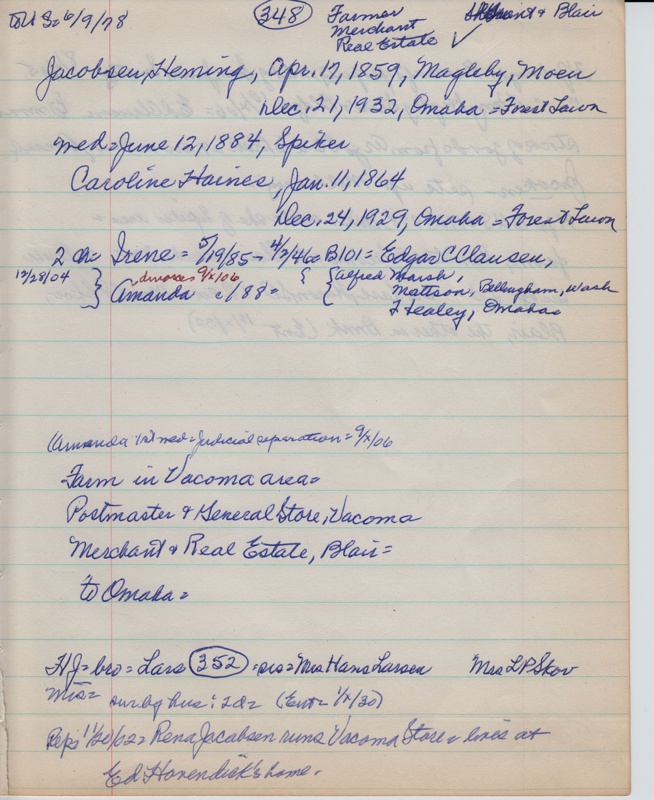 To U S = 6/9/78 (348) Farmer & Blair
Merchant
Real Estate ✓
Jacobsen, Heming, Apr. 17, 1859, Magleby, Moen
Dec. 21, 1932, Omaha = Forest Lawn
med = June 12, 1884, Spiker
Caroline Haines, Jan. 11, 1864
Dec. 24, 1929, Omaha = Forest Lawn
2 ch = Irene = 5/19/85 - 4/2/46 = B101 = Edgar C Clausen,
12/28/04 } divorces 9/x/06 { { Alfred Marsh,
Amanda c/88 = Mattson, Bellingham, Wash
Healey, Omaha =
Amanda 1st med = Judicial separation = 9/x/06
Farm in Vacoma area =
Postmaster & General Store, Vacoma
Merchant & Real Estate, Blair =
to Omaha =
HJ = bro = Lars (352) = sis = Mrs Hans Larsen Mrs L P Skov
Mrs = sur by hus: 2d = (Ent = 1/x/30)
Rep: 11/20/02 = Rena Jacobsen runs Vacoma Store = lives at
Ed Hovendick's home.